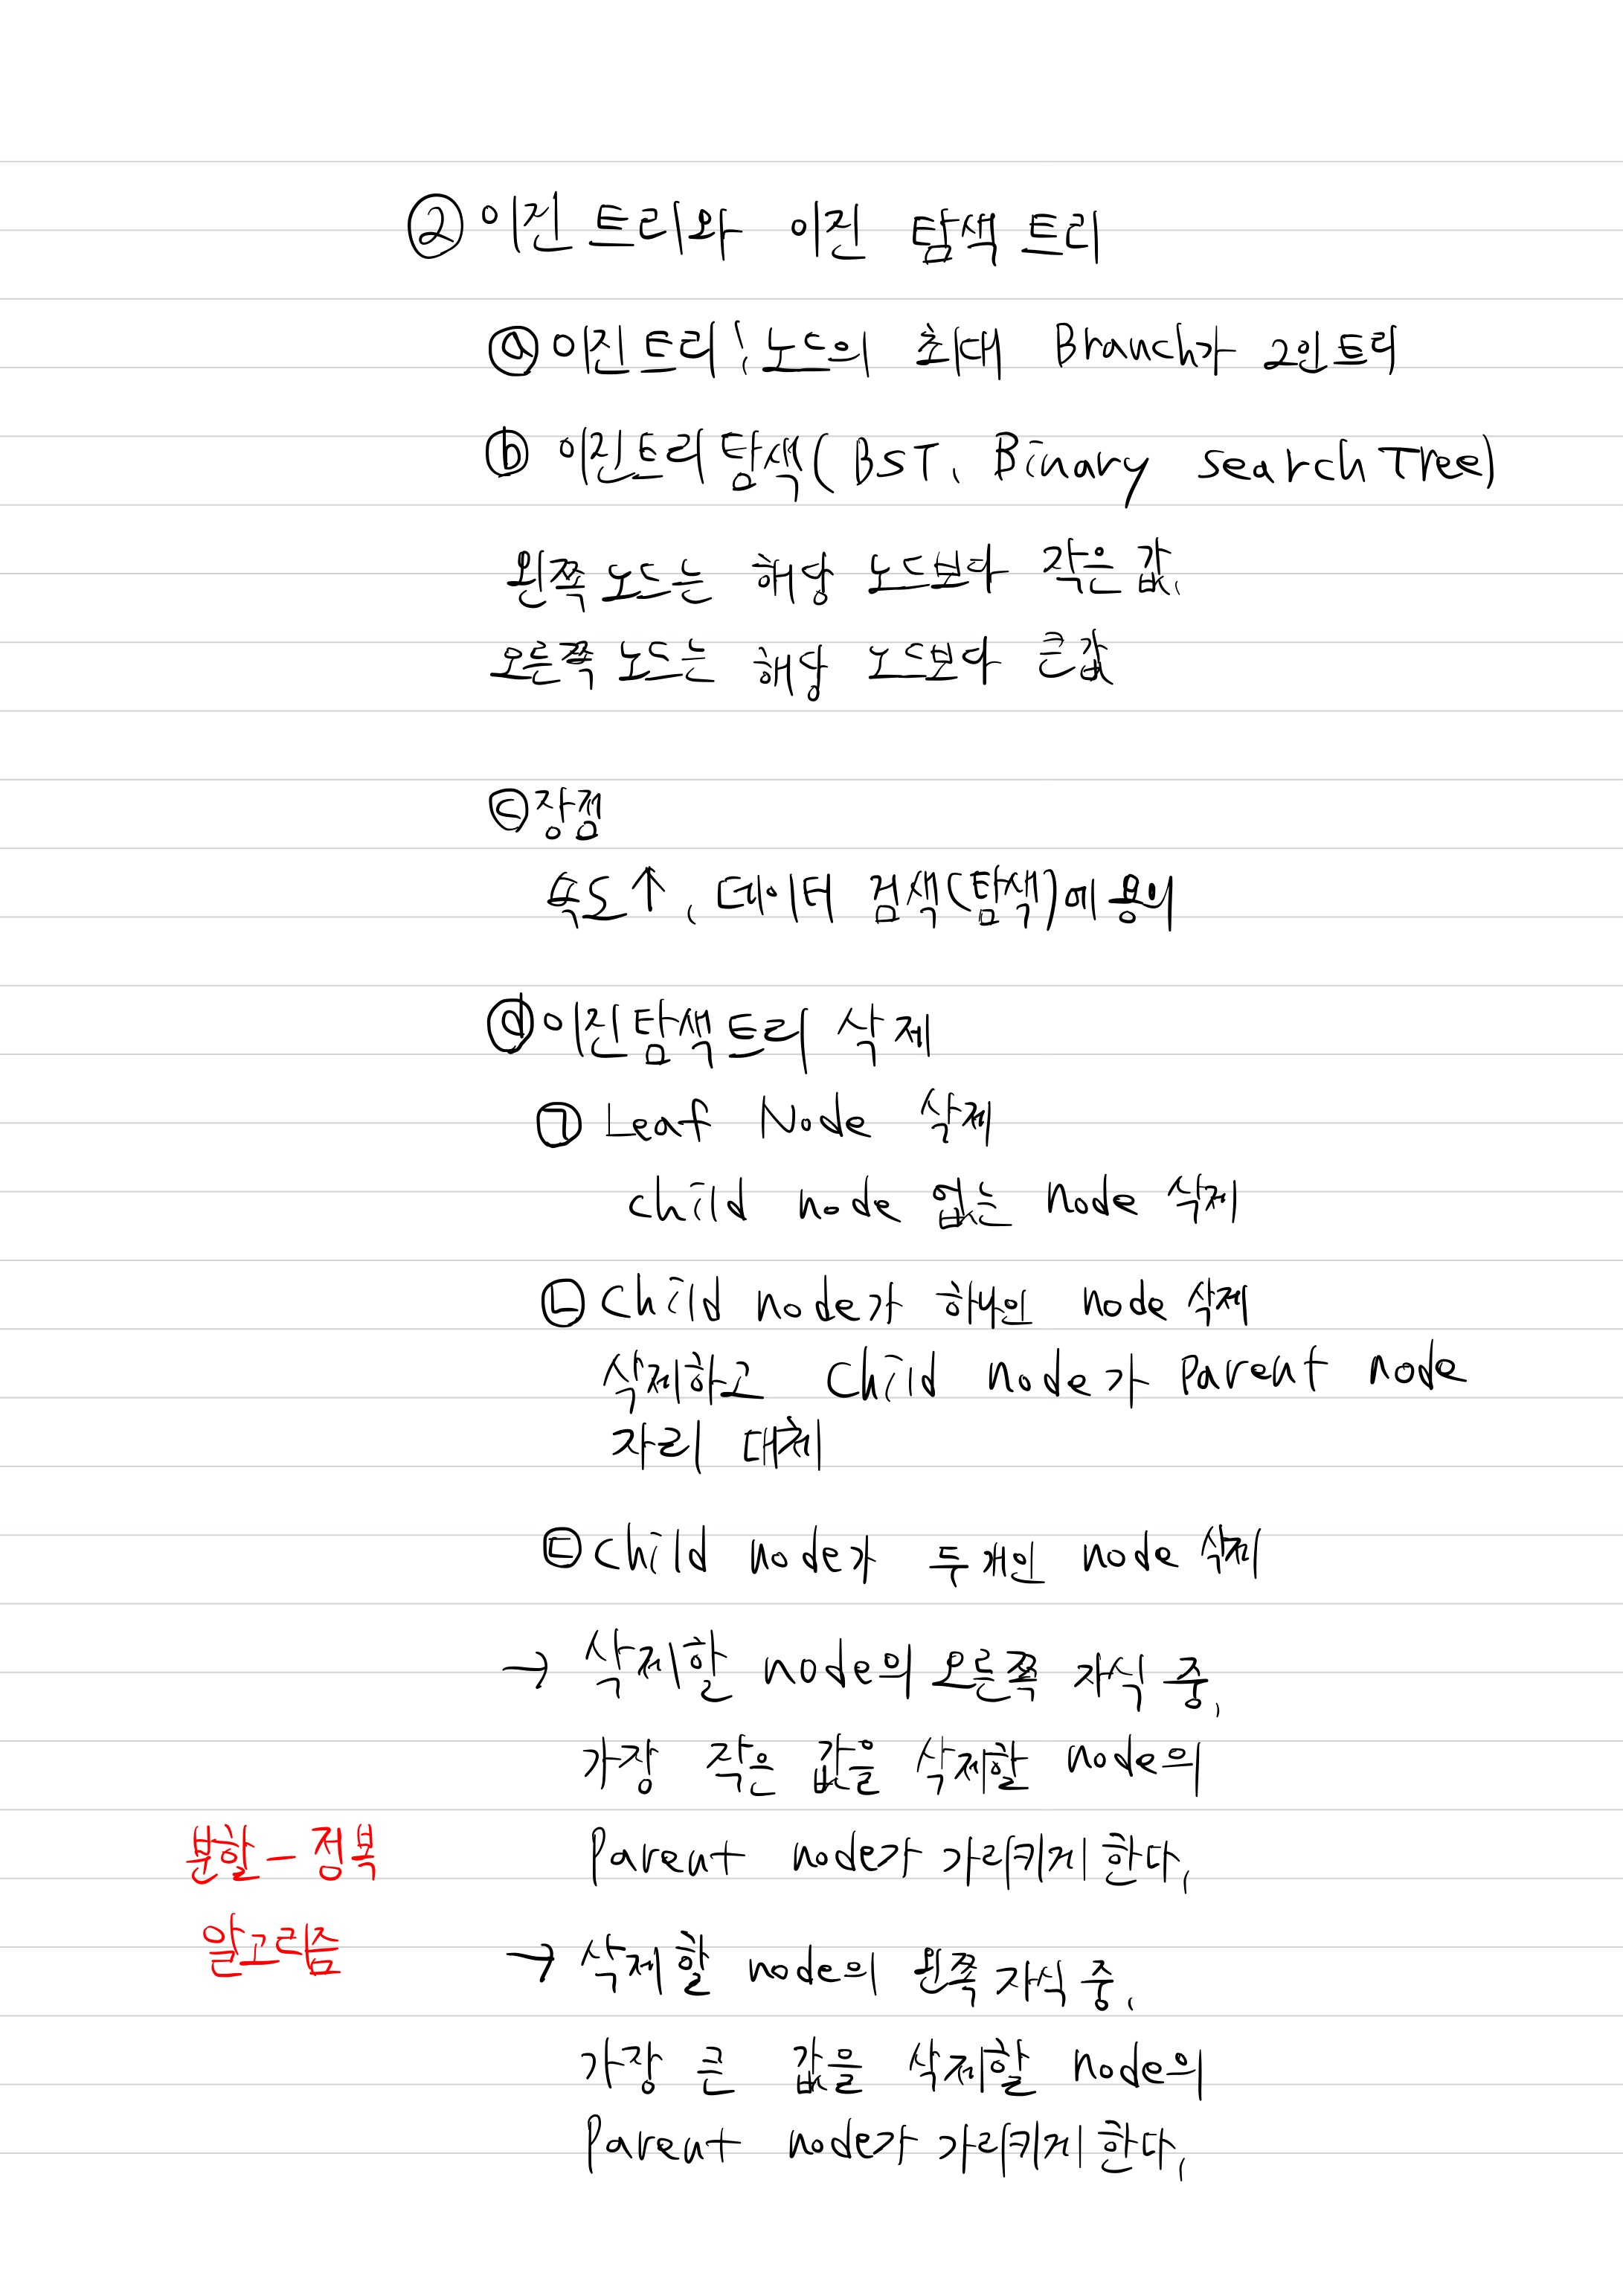 ② 이진 트리와 이진 탐색 트리
ⓐ 이진트리 : 노드의 최대 Branch가 2인 트리
ⓑ 이진트리탐색(BST, Binary Search Tree)
왼쪽 노드는 해당 노드보다 작은 값,
오른쪽 노드는 해당 노드보다 큰값
ⓒ 장점
속도↑, 데이터 검색(탐색)에 용의
ⓓ 이진탐색트리 삭제
㉠ Leaf Node 삭제
child node 없는 node 삭제
㉡ Child node가 하나인 node 삭제
삭제하고 Child node가 Parent node
자리 대체
㉢ Child node가 두개인 node 삭제
→ 삭제할 node의 오른쪽 자식 중,
가장 작은 값을 삭제할 node의
Parent node가 가리키게 한다,
분할 - 정복
알고리즘
→ 삭제할 node의 왼쪽 자식 중,
가장 큰 값을 삭제할 node의
Parent node가 가리키게 한다,